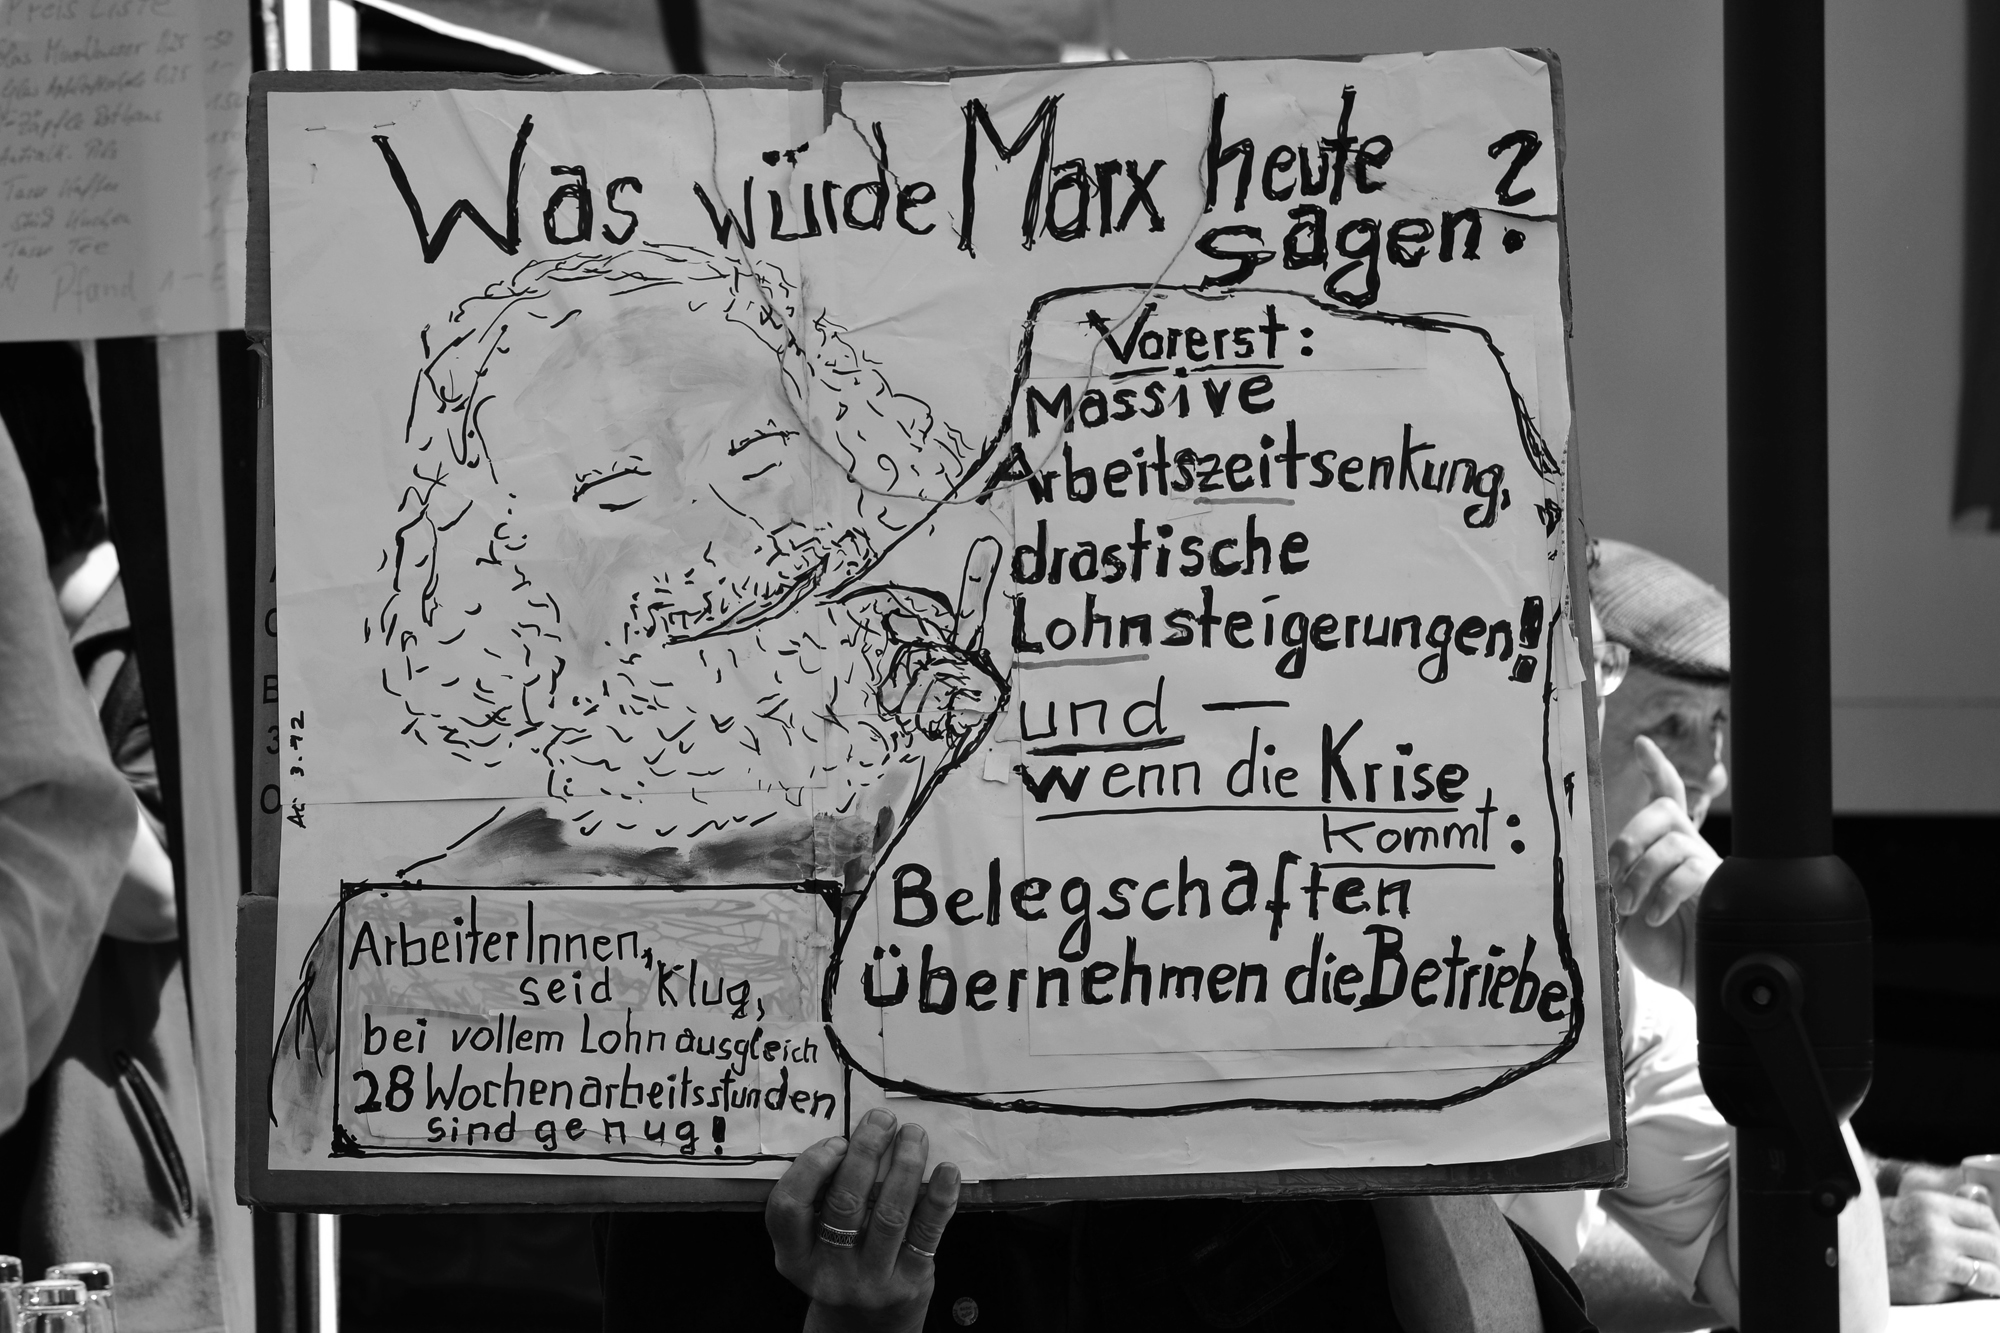 Preis Liste
Tasse Kaffee
Tasse Tee
Pfand 1-€
Was würde Marx heute
sagen?
Vorerst:
Massive
Arbeitszeitsenkung,
drastische
Lohnsteigerungen!
und —
wenn die Krise
kommt:
Belegschaften
übernehmen die Betriebe
ArbeiterInnen,
seid klug,
bei vollem Lohnausgleich
28 Wochenarbeitsstunden
sind genug!